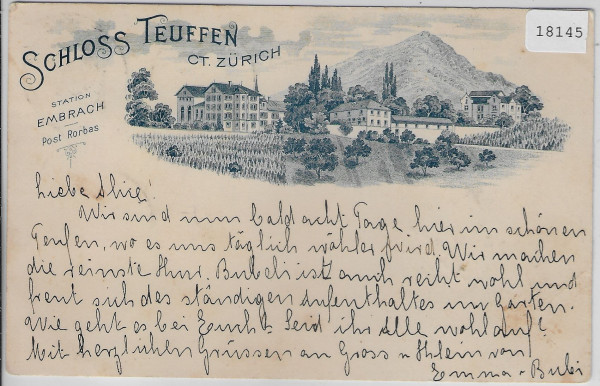 18145
SCHLOSS TEUFFEN
CT. ZÜRICH
STATION
EMBRACH
Post Rorbas
Liebe Alice!
Wir sind nun bald acht Tage hier im schönen
Teufen, wo es uns täglich wöhler wird. Wir machen
die reinste Kur. Bubeli ist auch recht wohl und
freut sich des ständigen Aufenthaltes im Garten.
Wie geht es bei Euch? Seid ihr Alle wohlauf?
Mit herzlichen Grüssen an Gross u Klein von
Emma & Bubi